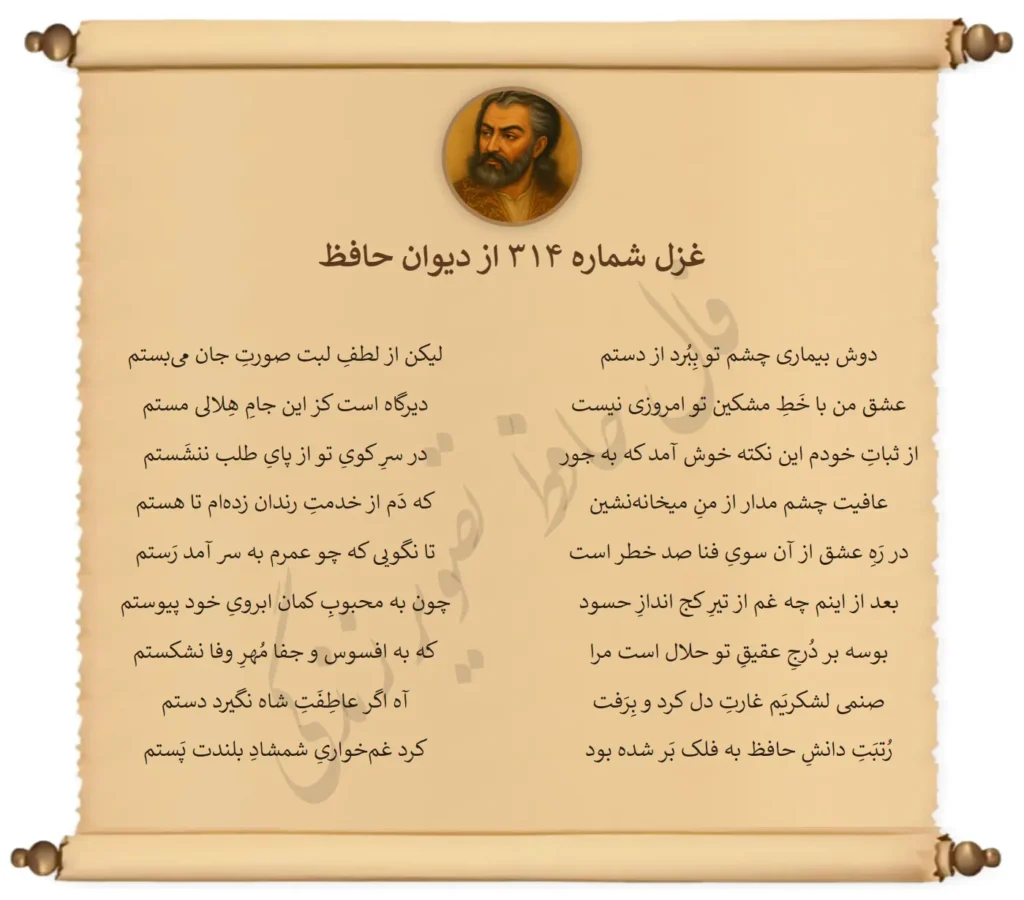 غزل شماره ۳۱۴ از دیوان حافظ
دوش بیماری چشم تو بِبُرد از دستم لیکن از لطفِ لبت صورتِ جان می‌بستم
عشق من با خَطِ مشکین تو امروزی نیست دیرگاه است کز این جامِ هِلالی مستم
از ثباتِ خودم این نکته خوش آمد که به جور در سرِ کویِ تو از پایِ طلب ننشَستم
عافیت چشم مدار از منِ میخانه‌نشین که دَم از خدمتِ رندان زده‌ام تا هستم
در رَهِ عشق از آن سویِ فنا صد خطر است تا نگویی که چو عمرم به سر آمد رَستم
بعد از اینم چه غم از تیرِ کج اندازِ حسود چون به محبوبِ کمان ابرویِ خود پیوستم
بوسه بر دُرجِ عقیقِ تو حلال است مرا که به افسوس و جفا مُهرِ وفا نشکستم
صنمی لشکریَم غارتِ دل کرد و بِرَفت آه اگر عاطِفَتِ شاه نگیرد دستم
رُتبَتِ دانشِ حافظ به فلک بَر شده بود کرد غم‌خواریِ شمشادِ بلندت پَستم
فال حافظ تصویر زندگی